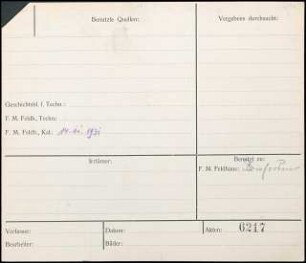 Benutzte Quellen:
Vergebens durchsucht:
Geschichtsbl. f. Techn.:
F. M. Feldh., Techn:
F. M. Feldh., Kal.: 14. 1936
Irrtümer:
Benutzt zu:
F. M. Feldhaus:
Verfasser:
Datum:
Akten: 6217
Bearbeiter:
Bilder: